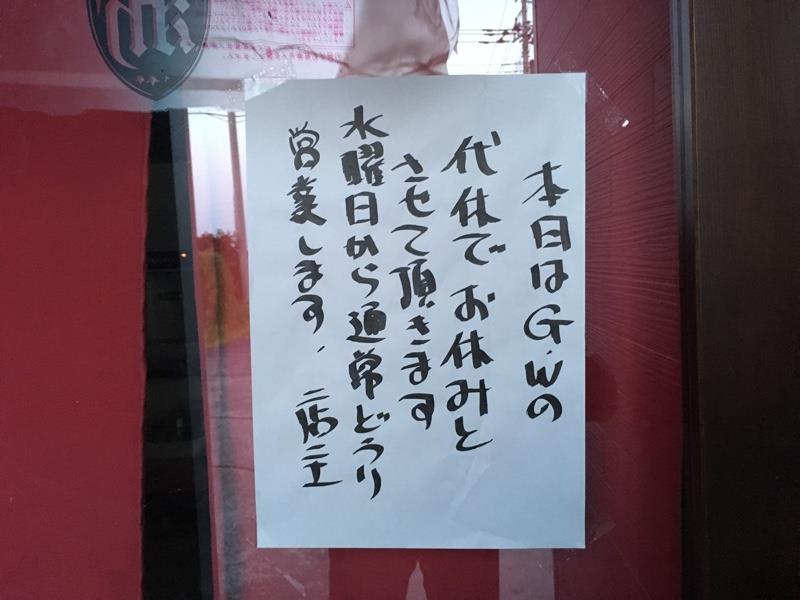 本日はG.Wの
代休でお休みと
させて頂きます
水曜日から通常どうり
営業します.店主